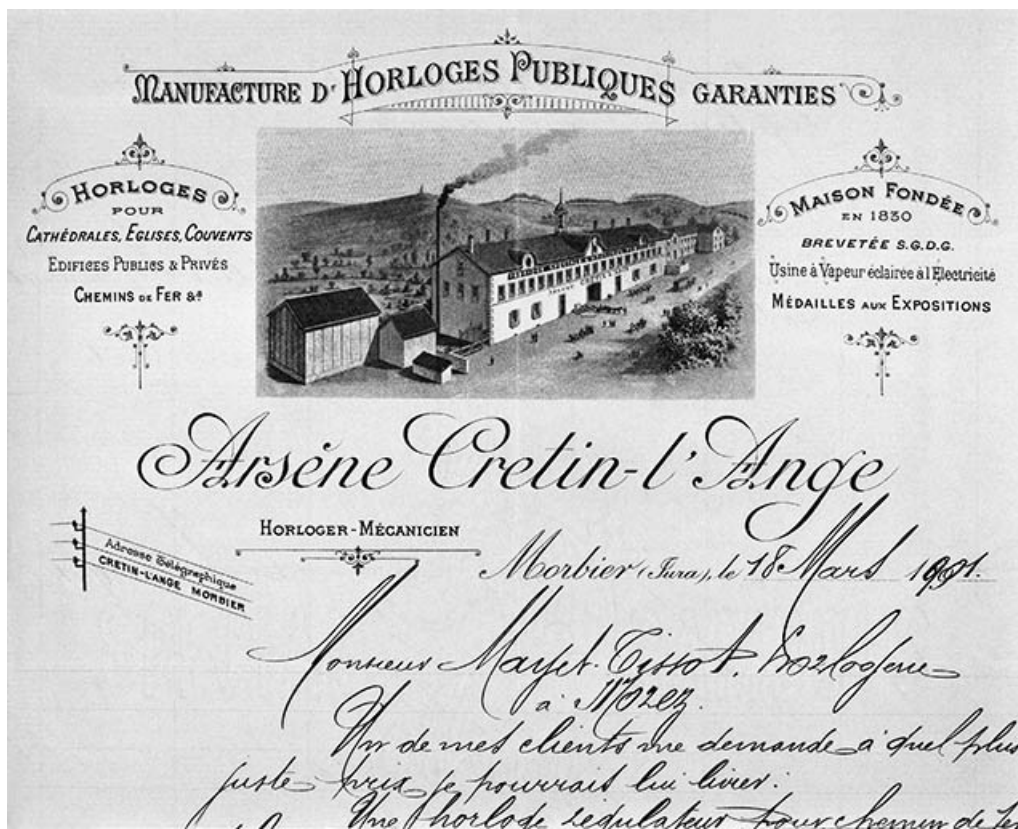 MANUFACTURE D'HORLOGES PUBLIQUES GARANTIES
HORLOGES
POUR
CATHÉDRALES, EGLISES, COUVENTS
EDIFICES PUBLICS & PRIVÉS
CHEMINS DE FER &a
MAISON FONDÉE
EN 1830
BREVETÉE S.G.D.G.
Usine à Vapeur éclairée à l'Electricité
MÉDAILLES AUX EXPOSITIONS
Arséne Cretin-l'Ange
HORLOGER-MÉCANICIEN
Adresse Télégraphique
CRETIN-L'ANGE MORBIER
Morbier (Jura), le 18 Mars 1901.
Monsieur Mayet-Tissot, horlogerie
à Morez.
Un de mes clients me demande à quel plus
juste prix je pourrais lui livrer:
Une horloge régulateur pour chemin de fer